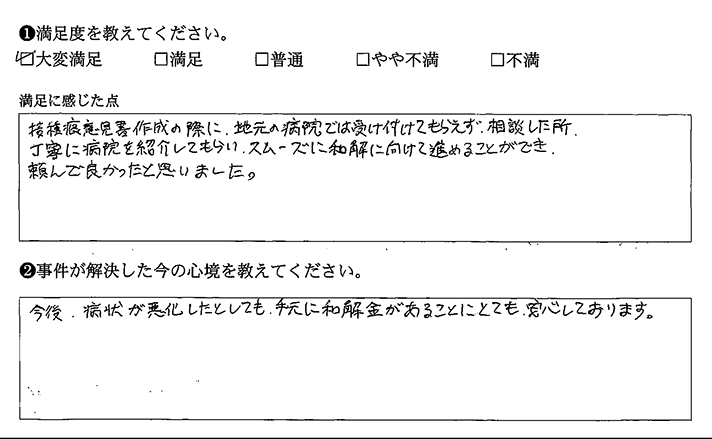 ❶満足度を教えてください。
☑大変満足 □満足 □普通 □やや不満 □不満
満足に感じた点
接種痕意見書作成の際に、地元の病院では受け付けてもらえず、相談した所、
丁寧に病院を紹介してもらい、スムーズに和解に向けて進めることができ、
頼んで良かったと思いました。
❷事件が解決した今の心境を教えてください。
今後、病状が悪化したとしても、手元に和解金があることにとても、安心しております。